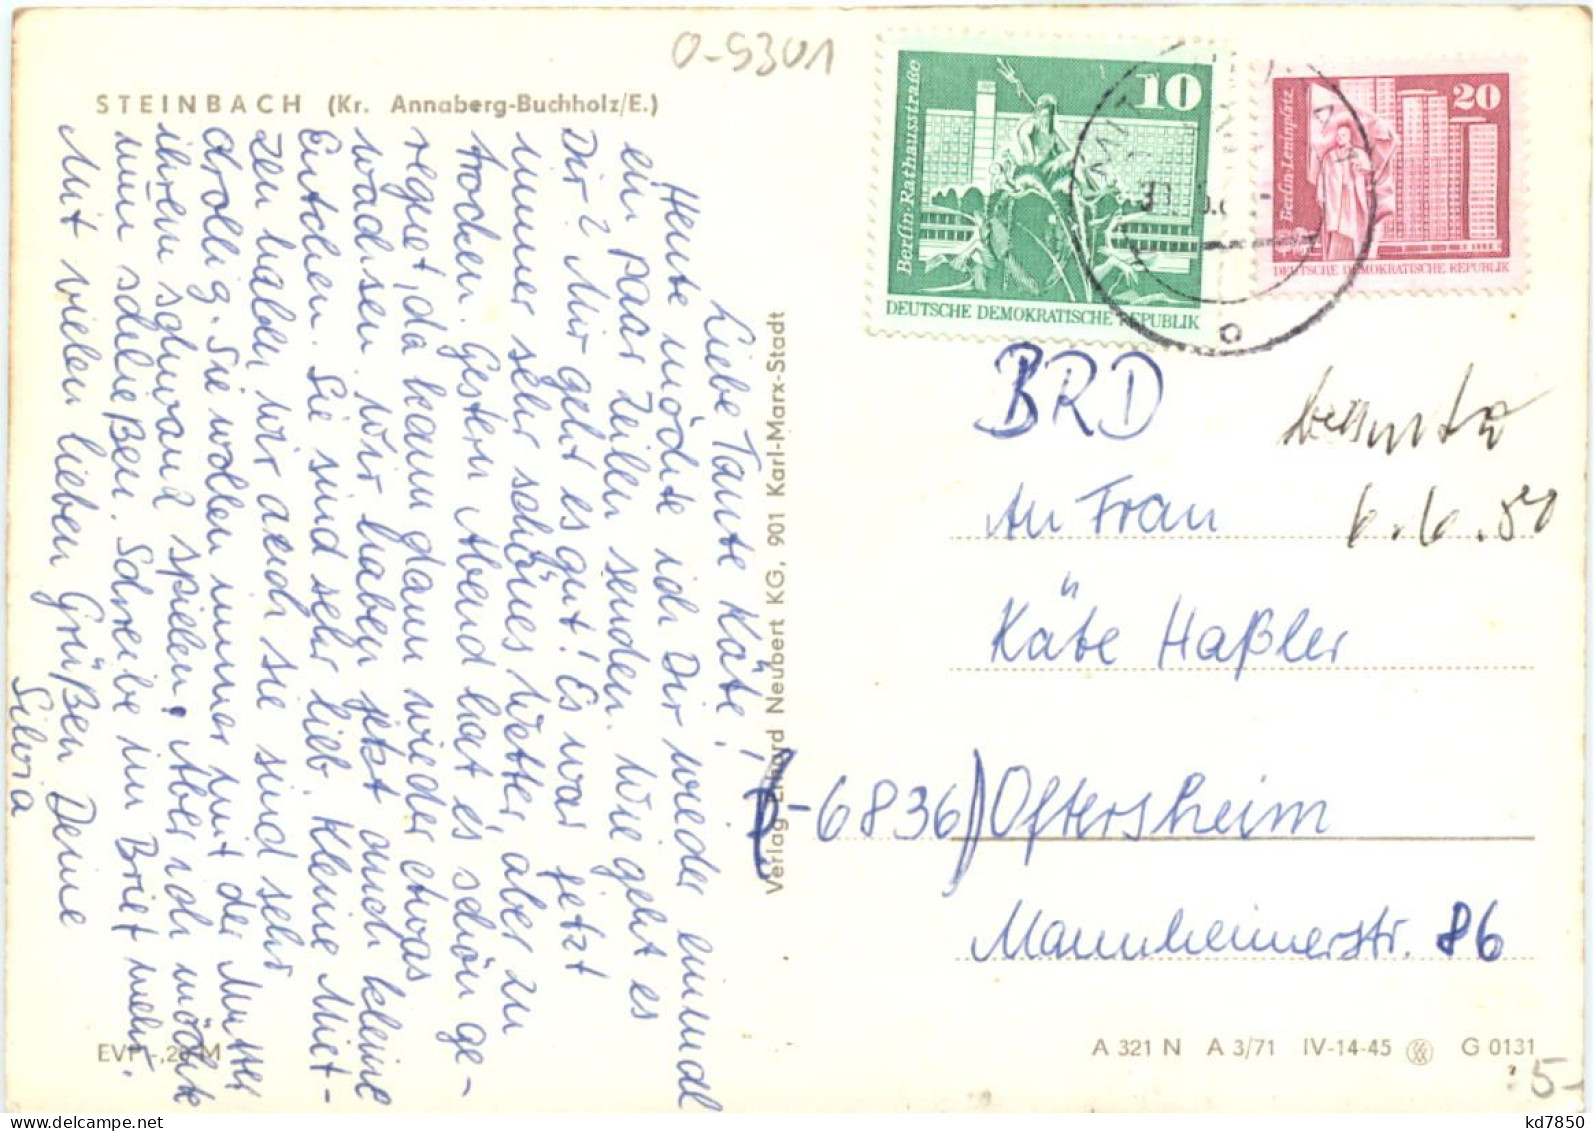 0-9301
STEINBACH (Kr. Annaberg-Buchholz/E.)
Liebe Tante Käte!
Heute möchte ich Dir wieder einmal
ein paar Zeilen senden. Wie geht es
Dir? Mir geht es gut! Es war jetzt
immer sehr schönes Wetter, aber zu
trocken. Gestern Abend hat es schön ge-
regnet, da kann dann wieder etwas
wachsen. Wir haben jetzt auch kleine
Entchen. Sie sind sehr lieb. Kleine Miet-
zen halden wir auch sie sind sehr
drollig. Sie wollen immer mit der Mutter
ihrem schwanz spielen. Aber ich möchte
nun schließen. Schreibe im Brief mehr.
Mit vielen lieben Grüßen Deine
Silvia
EVP -,20 M
Verlag Erhard Neubert KG, 901 Karl-Marx-Stadt
10
Berlin·Rathausstraße
DEUTSCHE DEMOKRATISCHE REPUBLIK
20
Berlin·Leninplatz
DEUTSCHE DEMOKRATISCHE REPUBLIK
BRD
6.6.80
An Frau
Käte Haßler
(D-6836) Oftersheim
Mannheimerstr. 86
A 321 N A 3/71 IV-14-45 G 0131
5-
kd7850